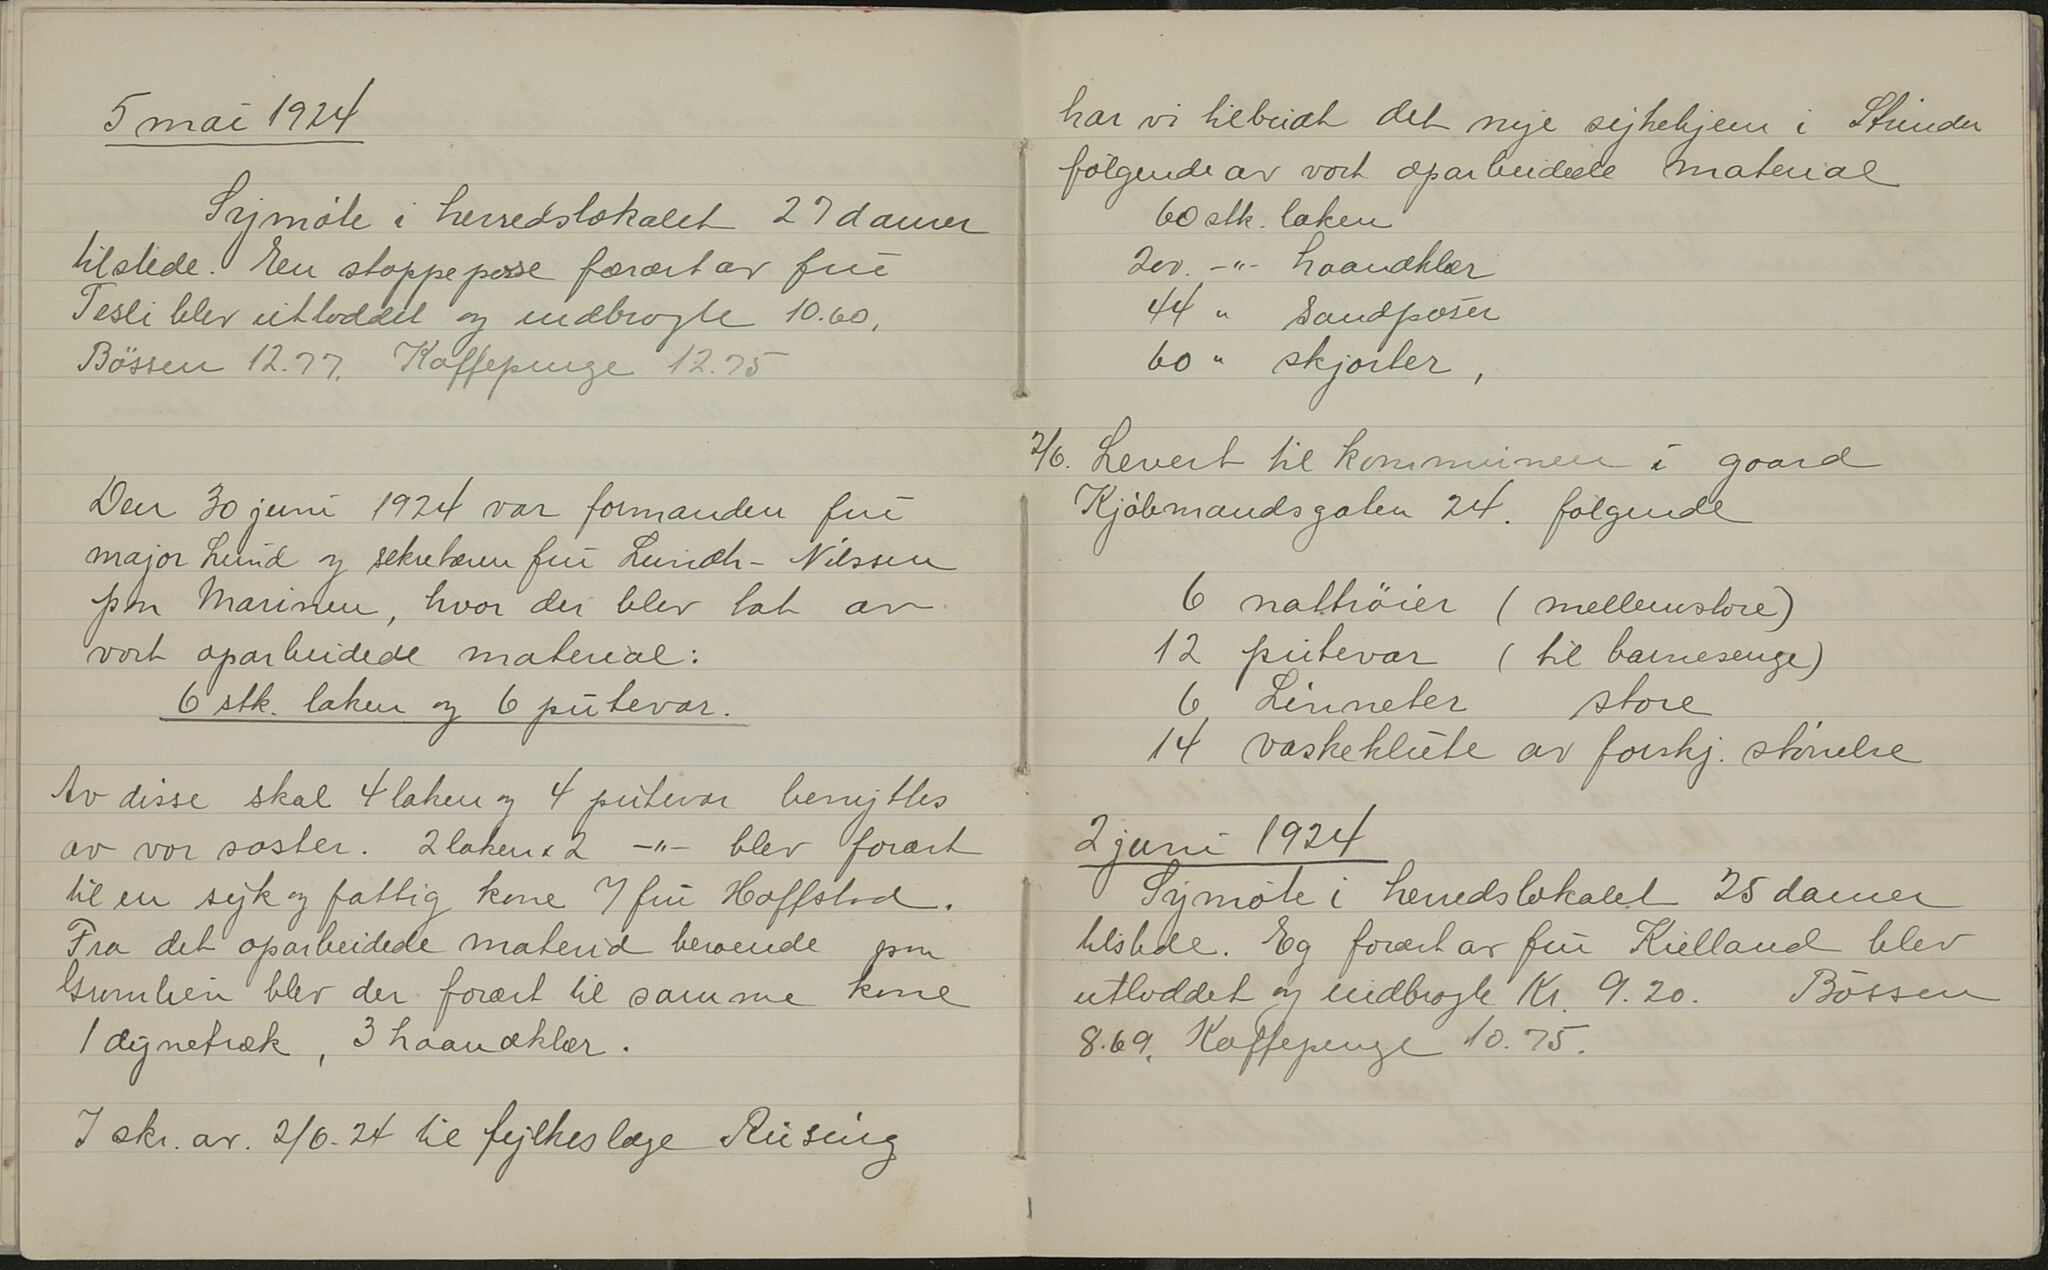 5 mai 1924
Symöte i herredslokalet 27 damer
tilstede. En stoppepose forært av frü
Tesli blev utloddet og indbragte 10.60.
Bössen 12.77. Kaffepenge 12.75
Den 30 juni 1924 var formanden frü
major Lund og sekretæren frü Lundh-Nilssen
paa Marinen, hvor der blev tat av
vort oparbeidede material:
6 stk. laken og 6 pütevar.
Av disse skal 4 laken og 4 pütevar benyttes
av vor söster. 2 laken & 2 -"- blev forært
til en syk og fattig kone / frü Hoffstad.
Fra det oparbeidede material beroende paa
blev der forært til samme kone
1 dynetræk, 3 haandklær.
I skr. av. 2/6-24 til fylkeslæge Rüsing
har vi tilbudt det nye sykehjem i Strinden
følgende av vort oparbeidede material
60 stk. laken
200. -"- haandklær
44 " sandposer
60 " skjorter,
2/6. Levert til kommunen i gaard
Kjöbmandsgaten 24. følgende
6 nattröier (mellemstore)
12 pütevar (til barnesenge)
6 Linneter store
14 vaskeklüte av forskj. störrelse
2 juni 1924
Symöte i herredslokalet 25 damer
tilstede. Eg forært av frü Kielland blev
utloddet og indbragte Kr. 9.20. Bössen
8.69. Kaffepenge 10.75.